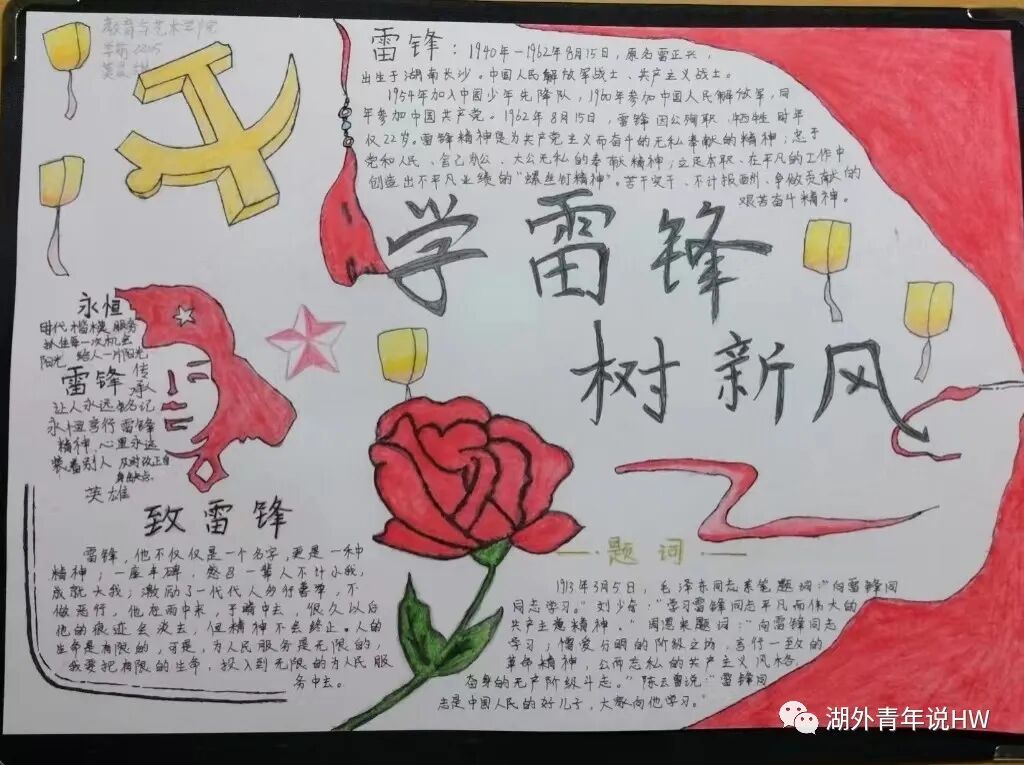 教育与艺术学院
学前2205
雷锋：1940年—1962年8月15日，原名雷正兴，
出生于湖南长沙。中国人民解放军战士、共产主义战士。
1954年加入中国少年先降队，1960年参加中国人民解放军，同
年参加中国共产党。1962年8月15日，雷锋因公殉职，牺牲时年
仅22岁。雷锋精神是为共产党主义而奋斗的无私奉献的精神；忠于
党和人民、舍己为公、大公无私的奉献精神；立足本职、在平凡的工作中
创造出不平凡业绩的“螺丝钉精神”。苦干实干、不计报酬、争做贡献的
艰苦奋斗精神。
学雷锋
树新风
永恒
时代楷模服务
抓住每一次机会
阳光 给人一片阳光
雷锋传承
让人永远铭记
永恒言行雷锋
精神，心里永远
装着别人 及时改正自
身缺点
英雄
致雷锋
雷锋，他不仅仅是一个名字，更是一种
精神；一座丰碑，感召一辈人不计小我，
成就大我；激励了一代代人力行善举，不
做恶行，他在雨中来，于晴中去，很久以后
他的痕迹会淡去，但精神不会终止。人的
生命是有限的，可是，为人民服务是无限的，
我要把有限的生命，投入到无限的为人民服
务中去。
题词
1913年3月5日，毛泽东同志亲笔题词：“向雷锋同
同志学习。”刘少奇：“学习雷锋同志平凡而伟大的
共产主义精神。”周恩来题词：“向雷锋同志
学习；憎爱分明的阶级立场，言行一致的
革命精神，公而忘私的共产主义风格，
奋身的无产阶级斗志。”陈云曾说：“雷锋同
志是中国人民的好儿子，大家向他学习。”
湖外青年说HW